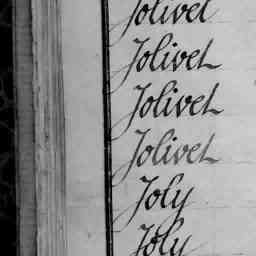 Jolivet
Jolivet
Jolivet
Jolivet
Joly
Joly